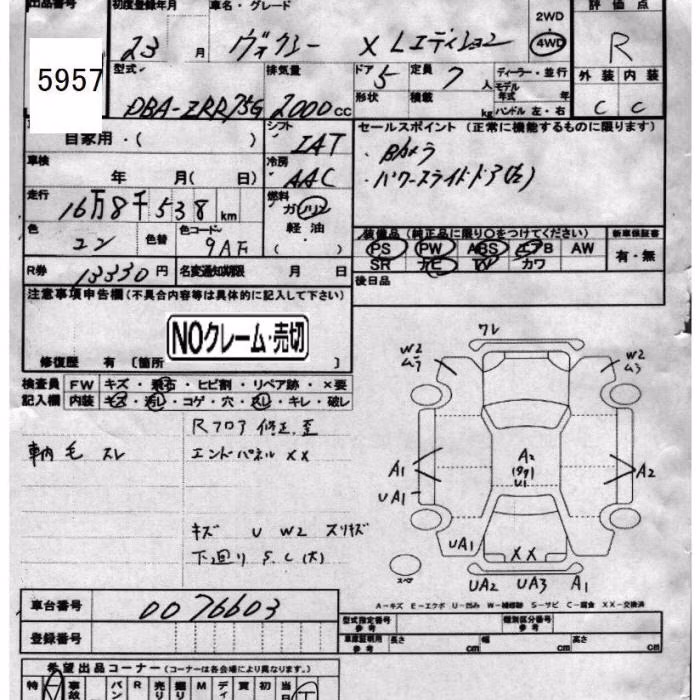 出品番号 初度登録年月 車名・グレード 2WD 評価点
5957 23 月 ヴォクシー X Lエディション 4WD R
型式 排気量 ドア 5 定員 7 人 ディーラー・並行 外装 内装
DBA-ZRR75G 2000 CC 形状 積載 kg モデル年式 年 ハンドル 左・右 C C
自家用・( ) シフト IAT セールスポイント (正常に機能するものに限ります)
車検 年 月( 日) 冷房 AAC ・Bカメラ
走行 16万8千538 km 燃料 ガソリン 軽油 ・パワースライドドア(左)
色 コン 色替 色コードNo. 9AF ( ) 装備品(純正品に限り○をつけてください) 新車保証書
PS PW ABS エアB AW 有・無
R券 13330円 名変通知期限 月 日 SR ナビ TV カワ
注意事項申告欄(不具合内容等は具体的に記入して下さい) 後日品
NOクレーム・売切
修復歴 有 [箇所 ]
検査員 FW キズ・飛石・ヒビ割・リペア跡・×要
記入欄 内装 キズ・汚レ・コゲ・穴・スレ・キレ・破レ
Rフロア 修正、歪
車内 毛 スレ エンドパネル XX
キズ U W2 スリキズ
下廻り S.C(大)
ワレ
W2 W2
A2
A1 A2
UA1 U1
UA1 XX
スペア UA2 UA3 A1
A-キズ E-エクボ U-凹み W-補修跡 S-サビ C-腐食 XX-交換済
車台番号 0076603 型式指定番号 参考 類別区分番号 参考
登録番号 車庫証明用 参考 長さ cm 幅 cm 高さ cm
希望出品コーナー(コーナーは各会場により異なります。)